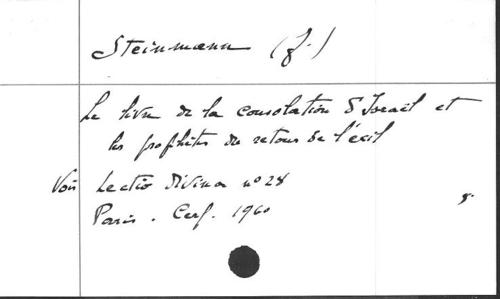 Steinmann (J.)
Le livre de la consolation d'Israël et
les prophètes du retour de l'exil
Voir Lectio Divina n° 28
Paris. Cerf. 1960